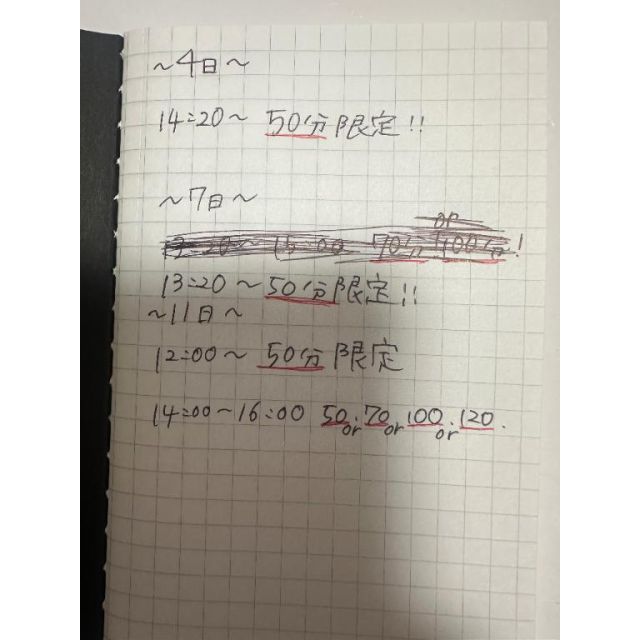 ~4日~
14:20~ 50分限定!!
~7日~
13:20~50分限定!!
~11日~
12:00~ 50分限定
14:00~16:00 50 or 70 or 100 or 120.